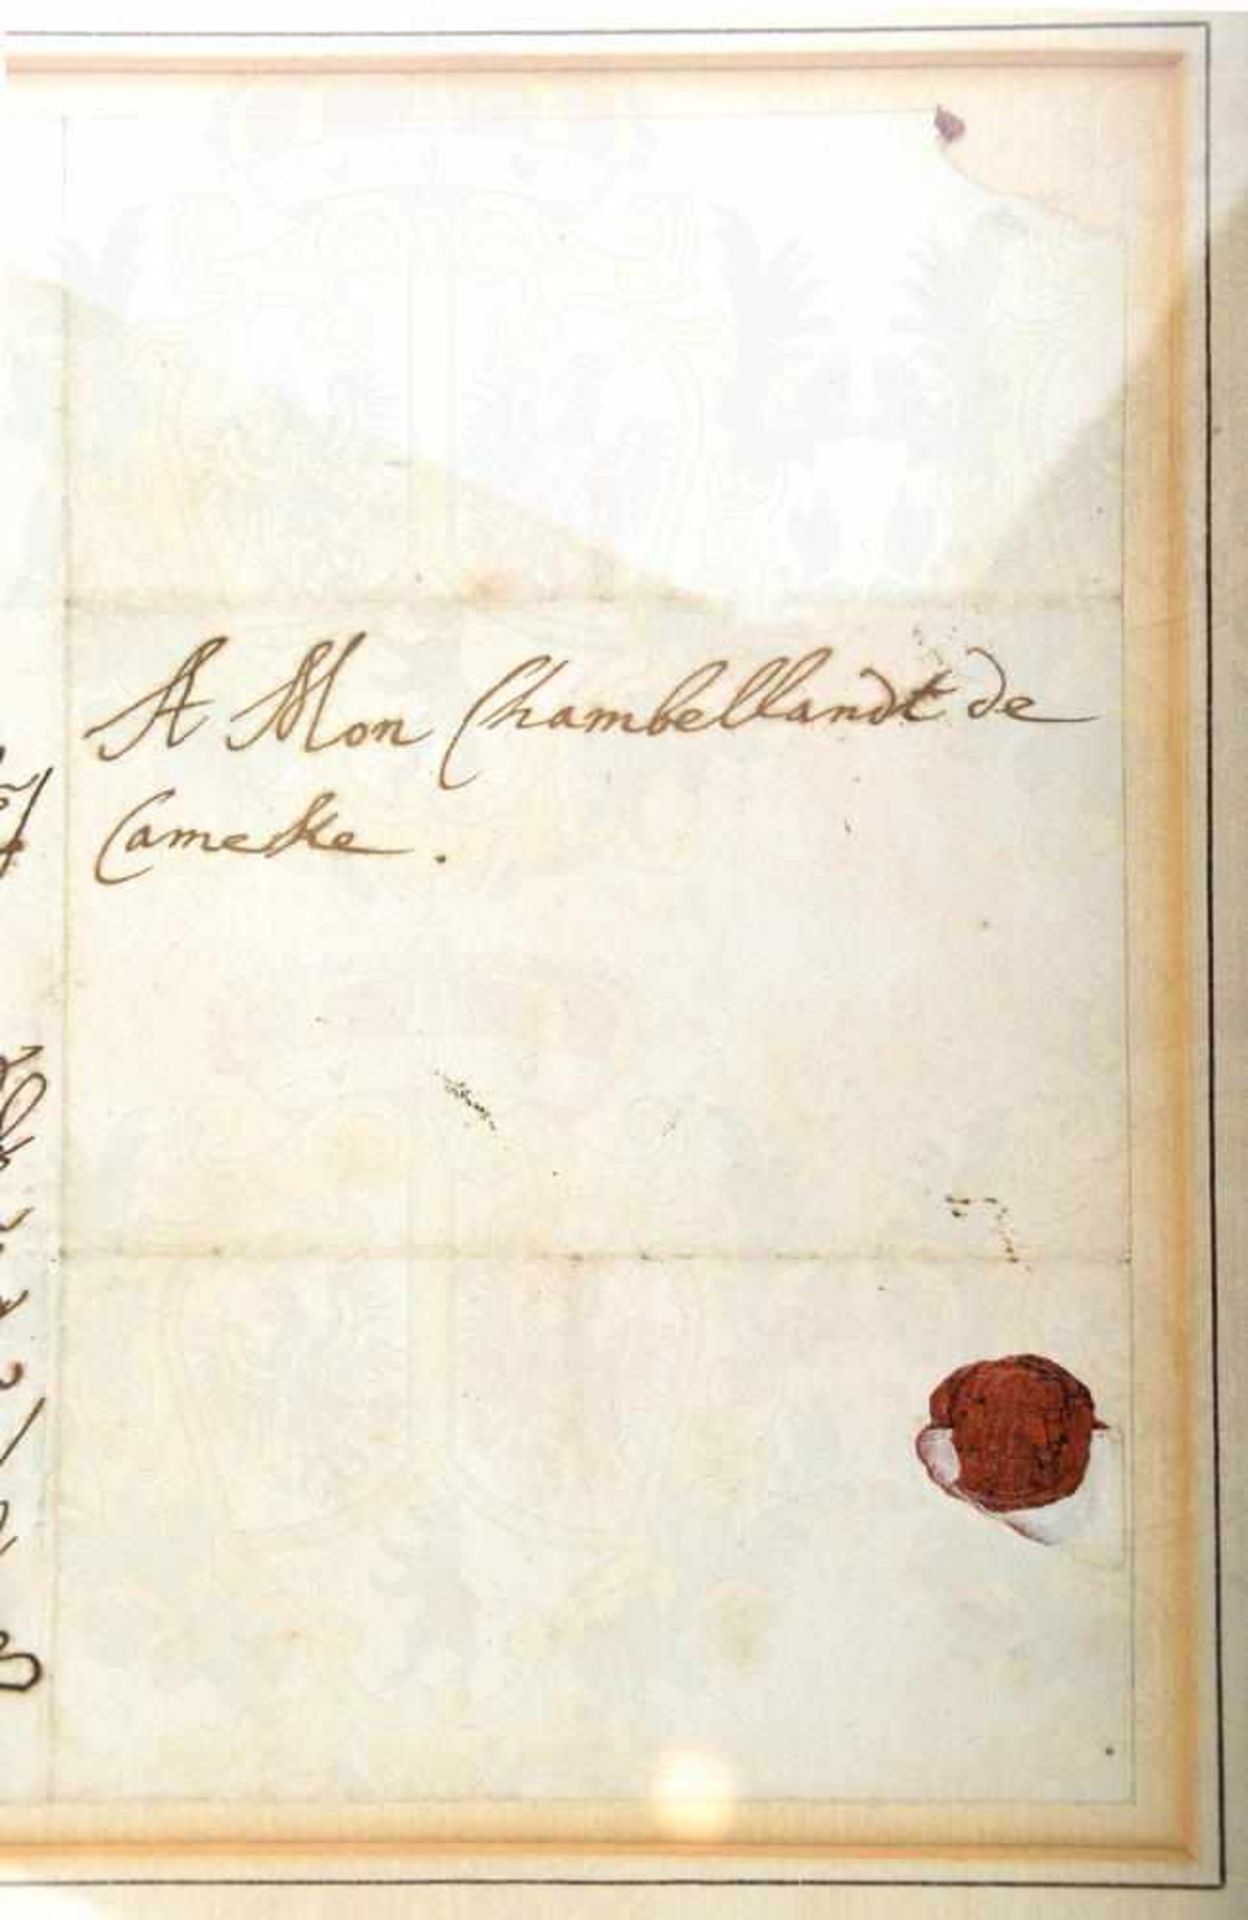 A Mon Chambellandt de
Cameke.